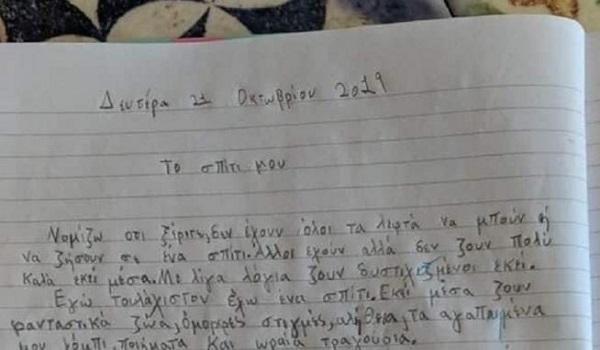 Δευτέρα 21 Οκτωβρίου 2019
Το σπίτι μου
Νομίζω οτι ξέριτε, δεν έχουν όλοι τα λεφτά να μπούν ή
να ζήσουν σε ένα σπίτι. Άλλοι έχουν αλλά δεν ζουν πολύ
καλά εκεί μέσα. Με λίγα λόγια ζουν δυστιχιζμένοι εκεί.
Εγώ τουλάχιστον έχω ένα σπίτι. Εκεί μέσα ζουν
φανταστικά ζώα, όμορφες στιγμές, αλήθεια, τα αγαπημένα
μου χόμπι, ποιήματα και ωραία τραγούδια.